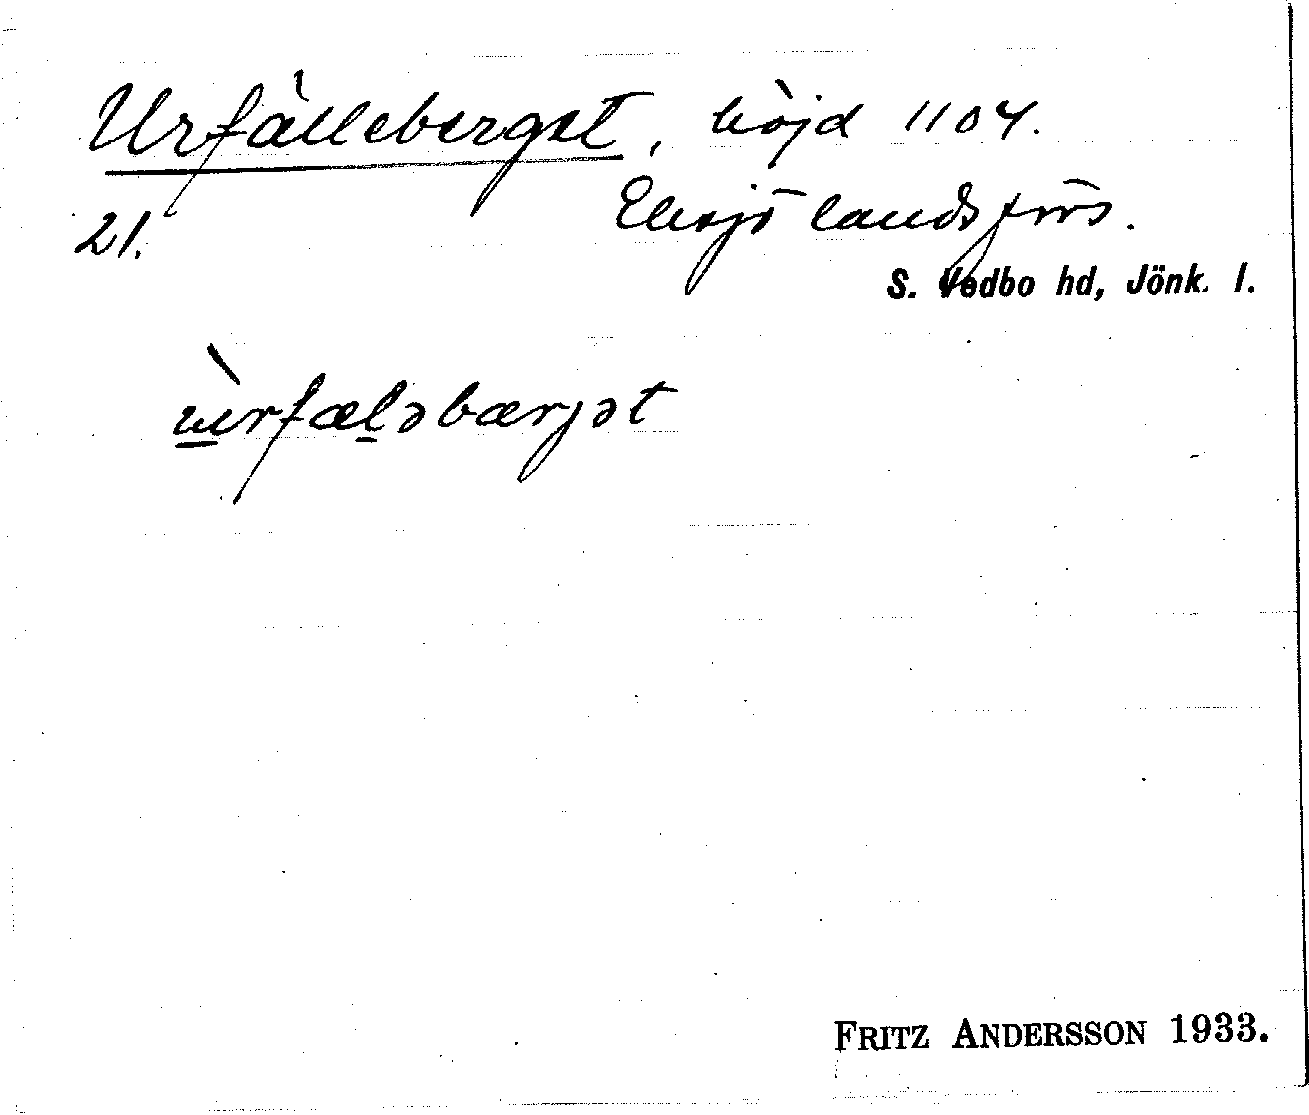 Urfälleberget, höjd 1104.
21. Eksjö landsförs.
S. Vedbo hd, Jönk. l.
ùrfælәbærjәt
FRITZ ANDERSSON 1933.